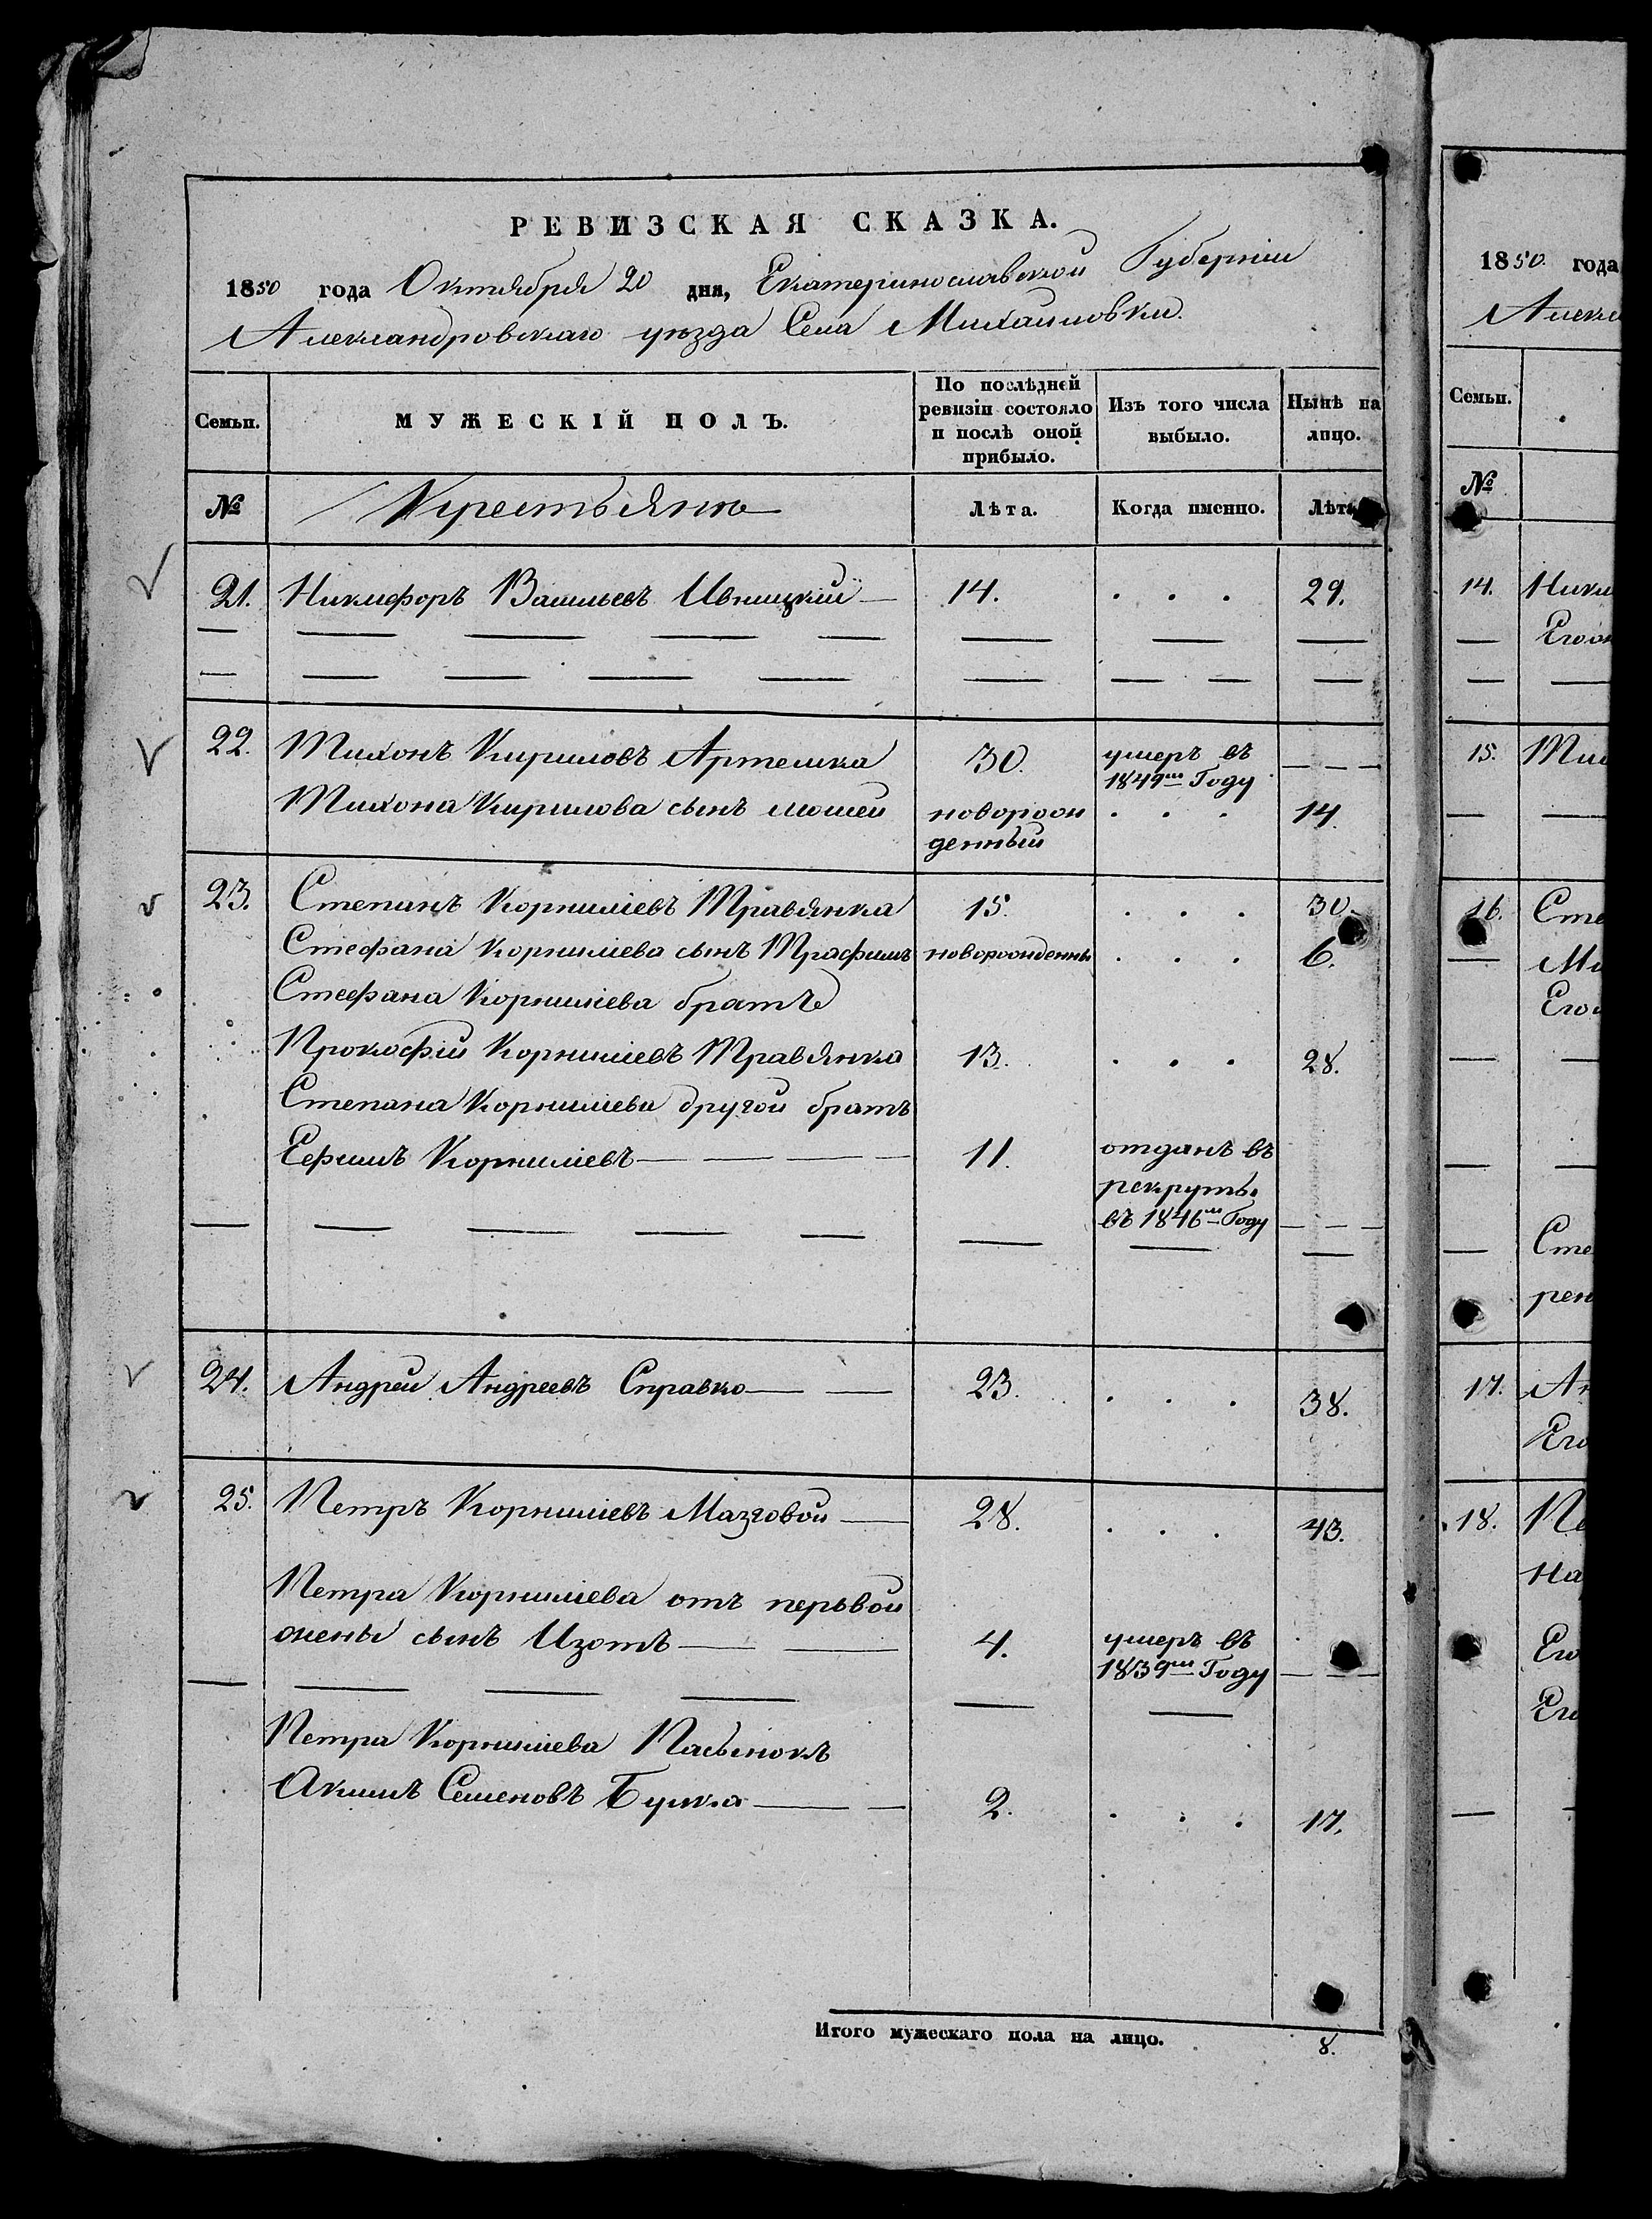 РЕВИЗСКАЯ СКАЗКА.
1850 года Октября 20 дня, Екатеринославской Губерніи
Александровскаго уезда Села Михайловки.
Семьи.
МУЖЕСКІЙ ПОЛЪ.
По послѣдней ревизіи состояло и послѣ оной прибыло.
Изъ того числа выбыло.
Нынѣ на лицо.
№
Крестьяне
Лѣта.
Когда именно.
Лѣта
21. Никифоръ Васильевъ 14. . . . 29.
22. Тихонъ Кириловъ Артемка 30. умеръ въ
1849м Году
Тихона Кирилова сынъ 14.
новорожденный . . .
23. Степанъ Корниліевъ Травянка 15. . . . 30.
Стефана Корниліева сынъ Трафимъ новорожденны . . . 6.
Стефана Корниліева братъ
Прокофій Корниліевъ Травянка 13. . . . 28.
Степана Корниліева другой братъ
Ефимъ Корниліевъ 11. отданъ въ
рекруты
въ 1846м Году
24. Андрей Андреевъ Справко 23. . . . 38.
25. Петръ Корниліевъ Мазговой 28. . . . 43.
Петра Корниліева отъ первой
жены сынъ Изотъ 4. умеръ въ
1839м Году
Петра Корниліева Пасынокъ
Акимъ Семеновъ 2. . . . 17.
Итого мужескаго пола на лицо. 8.
1850. года
Семьи.
№
14.
15.
16.
17.
18.